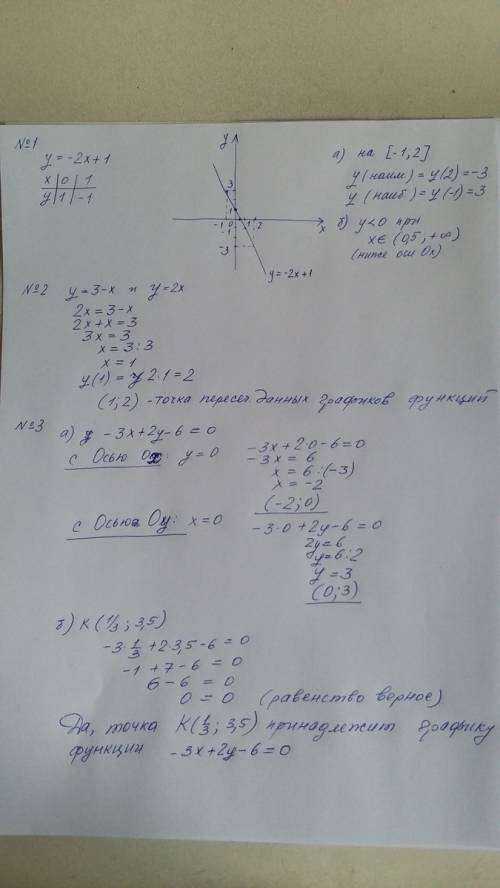 №1
y = -2x+1
x | 0 | 1
y | 1 | -1
y
3
1
-1 0 1 2
-1
x
-3
y=-2x+1
а) на [-1,2]
y(наим) = y(2) = -3
y(наиб) = y(-1) = 3
б) y<0 при
x∈ (0,5; +∞)
(ниже оси Ox)
№2 y=3-x и y=2x
2x=3-x
2x+x=3
3x=3
x=3:3
x=1
y(1) = 2·1=2
(1;2) -точка пересеч данных графиков функций
№3
а) -3x+2y-6=0
с Осью Ox: y=0
-3x+2·0-6=0
-3x = 6
x = 6:(-3)
x = -2
(-2;0)
с Осью Oy: x=0
-3·0+2y-6=0
2y=6
y=6:2
y=3
(0;3)
б) K(1/3; 3,5)
-3·1/3+2·3,5-6=0
-1+7-6=0
6-6=0
0=0 (равенство верное)
Да, точка K(1/3; 3,5) принадлежит графику
функции -3x+2y-6=0